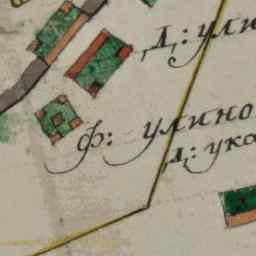 Д: ули
Ф: улино
Д: ука